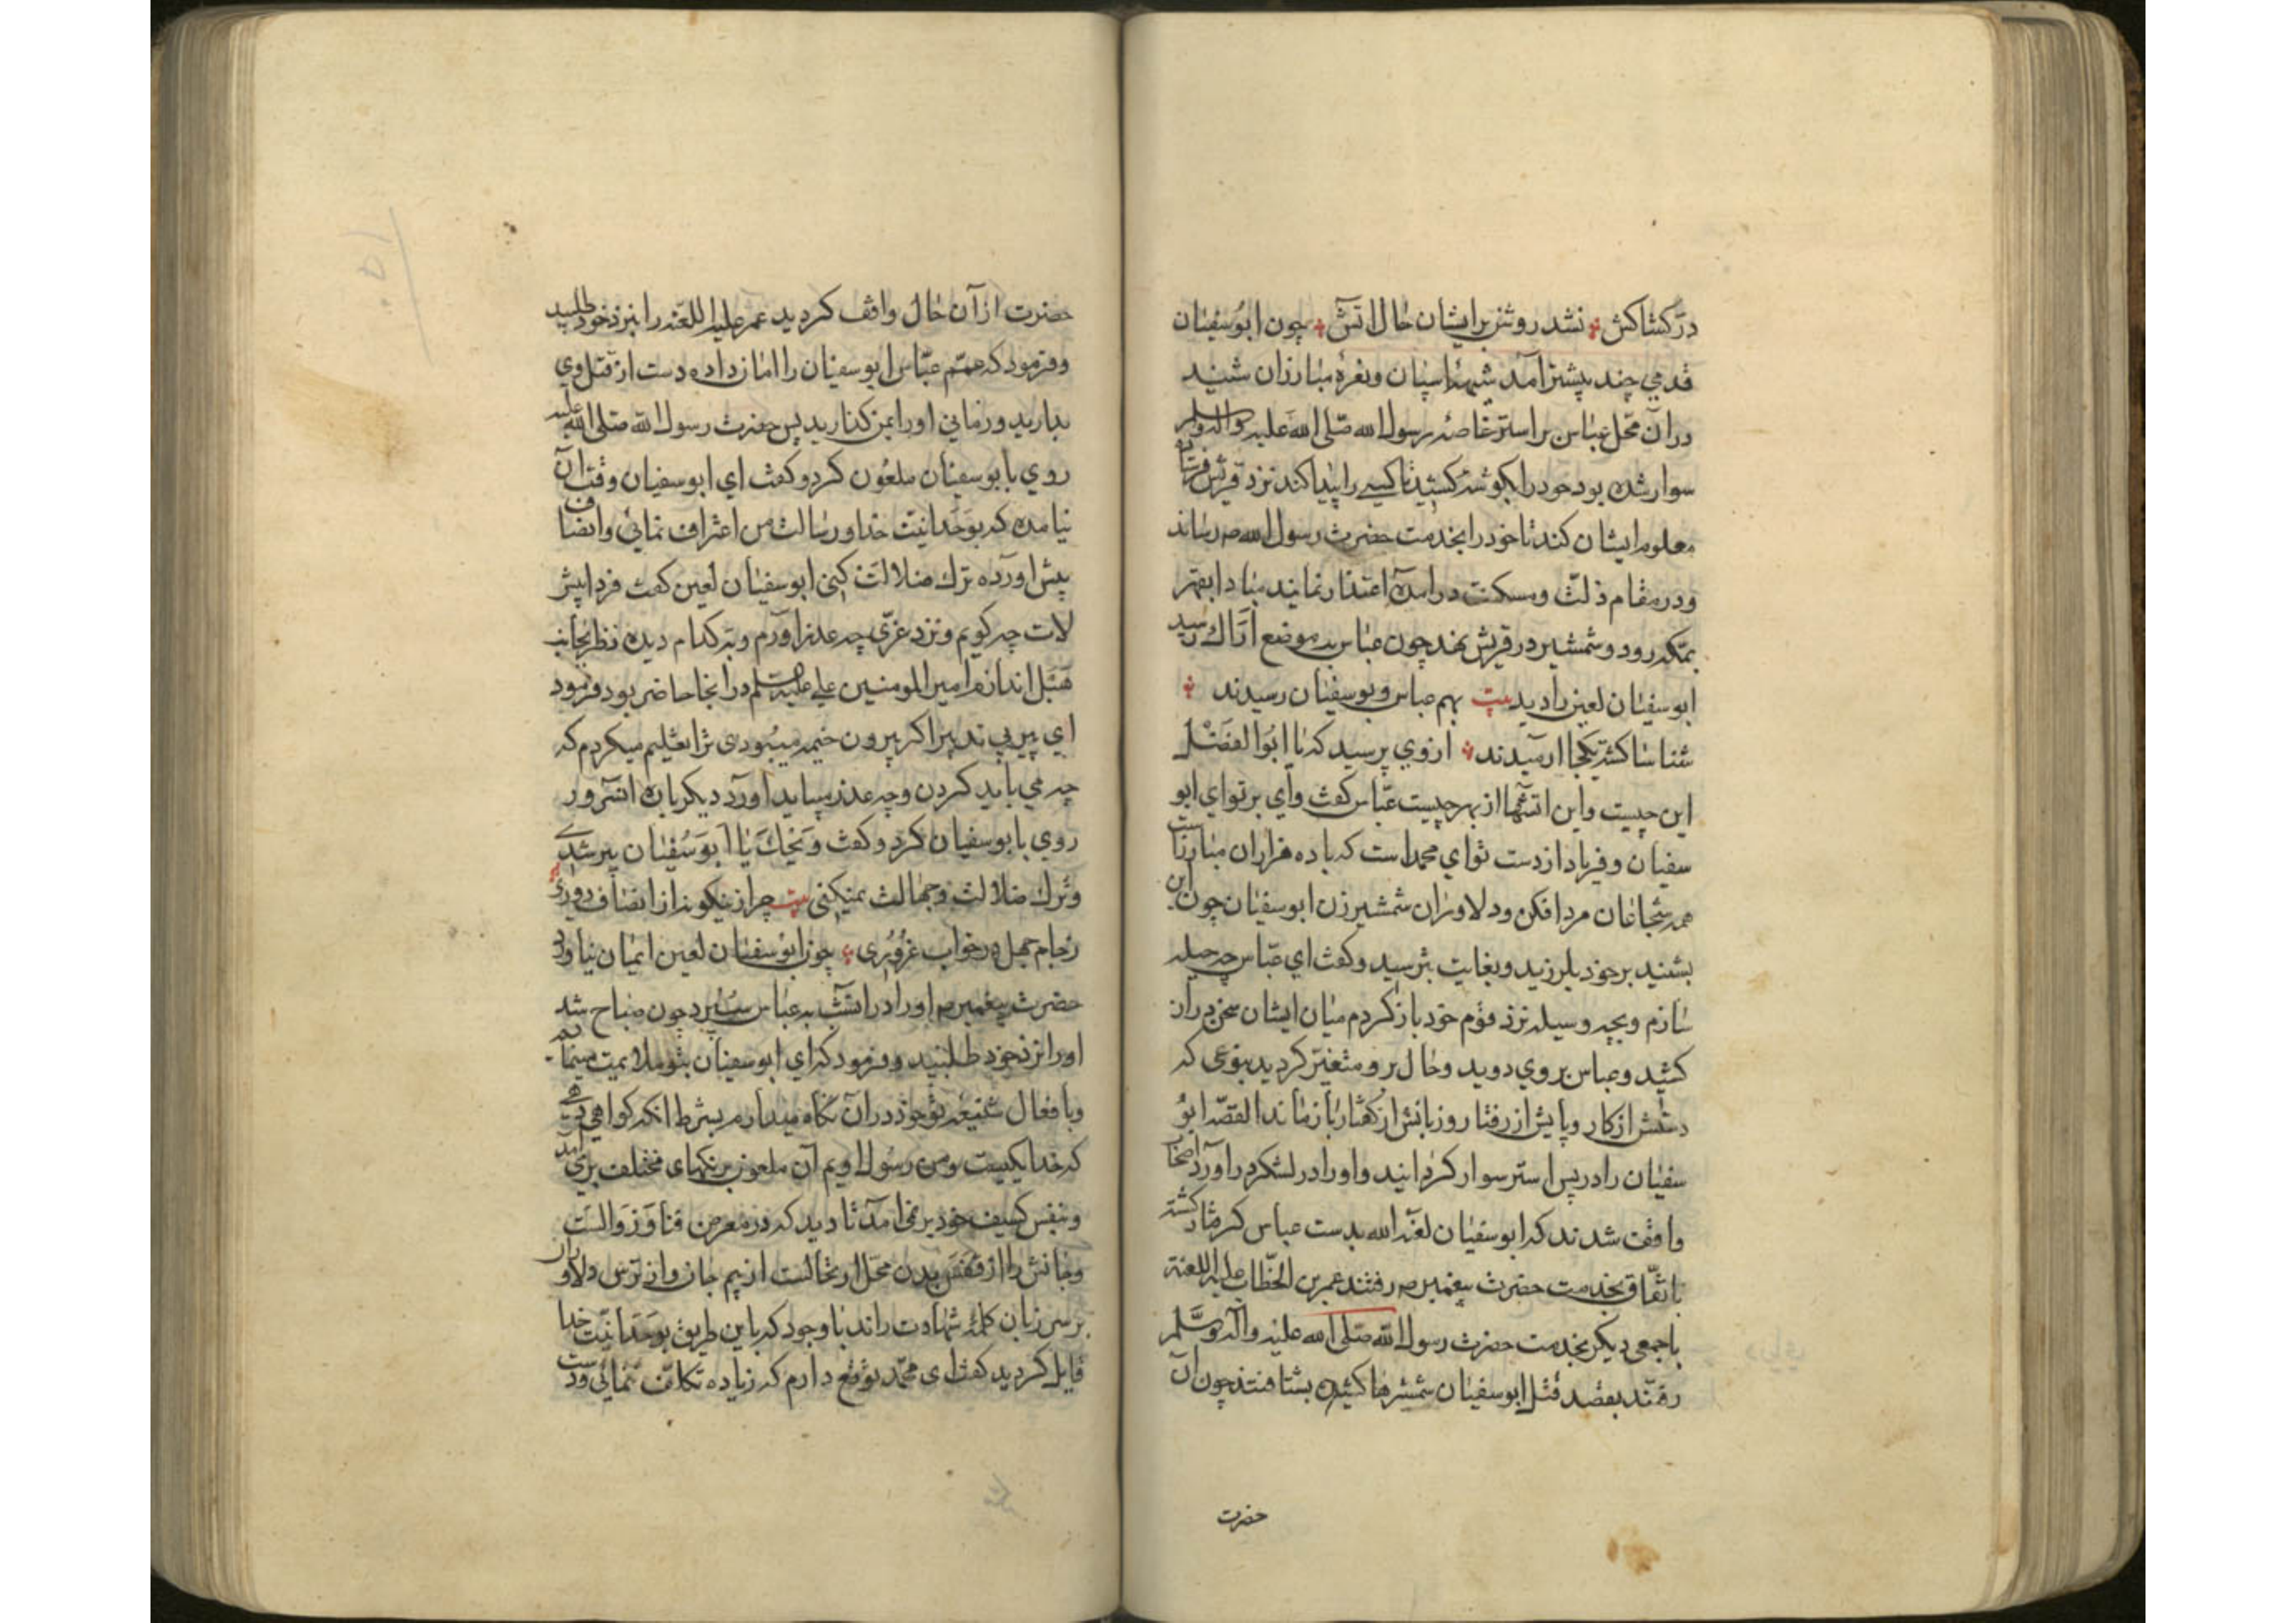 در کشاکش نشد روشن بر ایشان حال اتش چون ابوسفیان
قدمي چند پیشتر آمد شیهۀ اسپان ونعرۀ مبارزان شنید
ودر آن محل عباس بر استر خاصه رسول الله صلی الله علیه واله وسلم
سوار شده بود خود را بکوشه کشید تا کسی را پیدا کند نزد قریش فرستاده
معلوم ایشان کند تا خود را بخدمت حضرت رسول الله ص رساند
ودر مقام ذلت ومسکنت در آمده اعتذار نمایند مبادا بقهر
بمکه رود وشمشیر در قریش نهد چون عباس به موضع اراك رسید
ابوسفیان لعین را دید بیت بهم عباس وبوسفیان رسیدند
شناسا کشته یکجا ارمیدند از وي پرسید که یا ابوالفضل
این چیست واین اتشها از بهر چیست عباس کفت وأي بر تو اي ابو
سفیان وفریاد از دست تو اي محمد است که با ده هزاران مبارزانست
همه شجاعان مرد افکن ودلاوران شمشیر زن ابوسفیان چون این
بشنید بر خود بلرزید وبغایت بترسید وکفت اي عباس چه حیله
سازم وبچه وسیله نزد قوم خود باز کردم میان ایشان سخن دراز
کشید وعباس بر وي دوید وحال بر و متغیر کردید بنوعی که
دستش از کار وپایش از رفتار وزبانش از کفتار باز ماند القصه ابو
سفیان را در پس استر سوار کردانید واو را در لشکر در آورد اصحاب
واقف شدند که ابوسفیان لعنه الله بدست عباس کرفتار کشته
باتفاق بخدمت حضرت پیغمبر ص رفتند عمر بن الخطاب علیه اللعنة
با جمعی دیکر بخدمت حضرت رسول الله صلی الله علیه وآله وسلم
رفتند بقصد قتل ابوسفیان شمشیرها کشیده بشتافتند چون آن
حضرت
حضرت از آن حال واقف کردید عمر علیه اللعنه را بنزد خود طلبید
وفرمود که عمم عباس ابوسفیان را امان داده دست از قتل وي
بدارید وزماني او را ایمن کذارید پس حضرت رسول الله صلی الله علیه
روي بابوسفیان ملعون کرد وکفت اي ابوسفیان وقت آن
نیامده که بوحدانیت خدا ورسالت من اعتراف نمائي وانصاف
پیش آورده ترك ضلالت کنی ابوسفیان لعین کفت فردا پیش
لات چه کویم ونزد عزی چه عذر اورم وبه کدام دیده نظر بجانب
هبل اندازم امیر المومنین علي علیه السلم در انجا حاضر بود فرمود
اي پیر بي تدبیر اکر بیرون خیمه میبودی ترا تعلیم میکردم که
چه مي باید کردن وچه عذر میباید آورد دیکر باره انسرور
روي بابوسفیان کرد وکفت ویحك یا ابوسفیان پیر شدي
وترك ضلالت وجهالت نمیکنی بیت چرا از نیکوئ از انصاف دوری
زجام جهل در خواب غروری چون ابوسفیان لعین ایمان نیاورد
حضرت پیغمبر ص او را در انشب به عباس سپرد چون صباح شد
او را نزد خود طلبید وفرمود که اي ابوسفیان بتو ملایمت مینمایم
وبافعال شنیعه تو خود در آن نکاه میدارم بشرط انکه کواهی دهی
که خدا یکیست ومن رسول اویم آن ملعون برنکهای مختلف بر می آمد
ونفس کثیف خود بر نمی امد تا دید که در معرض فنا وزوالست
وجانش را از قفس بدن محل ارتحالست از بیم جان واز ترس دلاوران
بر سر زبان کلمۀ شهادت راند با وجود که باین طریق بوحدانیت خدا
قایل کردید کفت ای محمد توقع دارم که زیاده تکلف ننمائي ودست